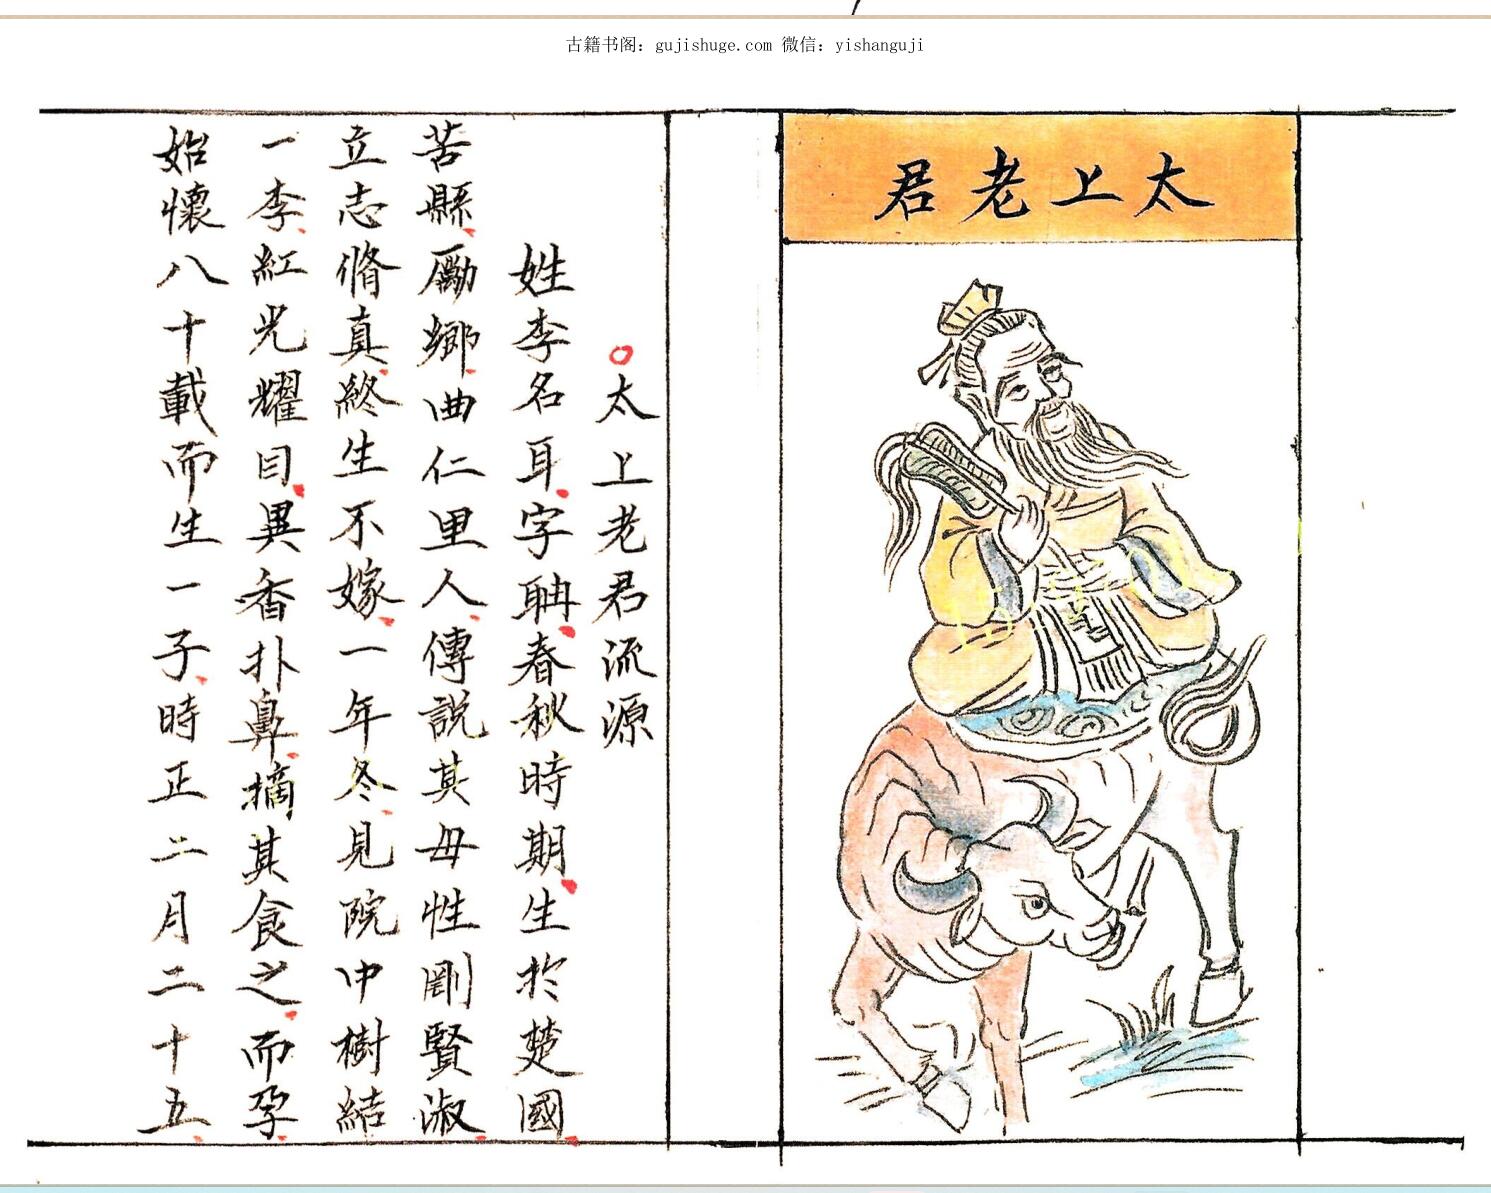 古籍书阁：gujishuge.com 微信：yishanguji
太上老君
太上老君流源
姓李名耳字聃春秋時期生於楚國
苦縣厲鄉曲仁里人傳說其母性剛賢淑
立志脩真終生不嫁一年冬見院中樹結
一李紅光耀目異香扑鼻摘其食之而孕
始懷八十載而生一子時正二月二十五